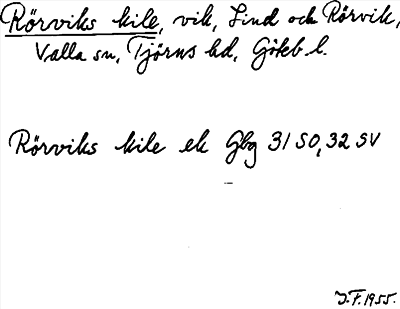 Rörviks kile, vik, Lind och Rörvik,
Valla sn, Tjörns hd, Göteb l.
Rörviks kile ek Gbg 31 SO, 32 SV
J.F. 1955.